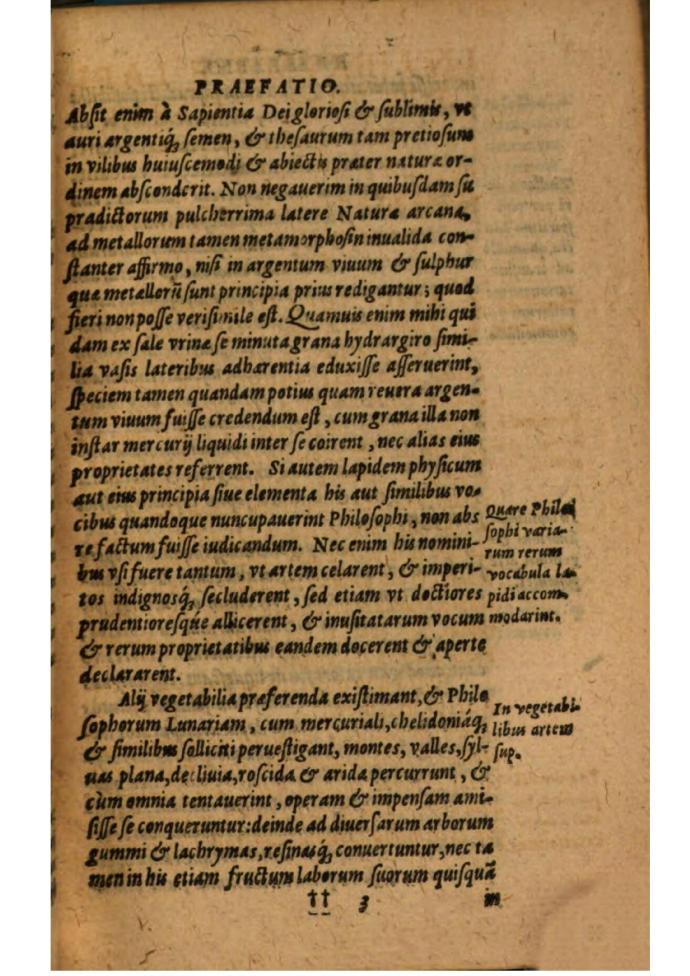 PRAEFATIO.
Absit enim à Sapientia Dei gloriosi & sublimis, vt
auri argentiq́; semen, & thesaurum tam pretiosum
in vilibus huiuscemodi & abiectis præter naturæ or-
dinem absconderit. Non negauerim in quibusdam su
prædictorum pulcherrima latere Naturæ arcana,
ad metallorum tamen metamorphosin inualida con-
stanter affirmo, nisi in argentum viuum & sulphur
quæ metallorũ sunt principia prius redigantur; quod
fieri non posse verisimile est. Quamuis enim mihi qui
dam ex sale vrinæ se minuta grana hydrargiro simi-
lia vasis lateribus adhærentia eduxisse asseruerint,
speciem tamen quandam potius quam reuera argen-
tum viuum fuisse credendum est, cum grana illa non
instar mercurij liquidi inter se coirent, nec alias eius
proprietates referrent. Si autem lapidem physicum
aut eius principia siue elementa his aut similibus vo-
cibus quandoque nuncupauerint Philosophi, non abs
re factum fuisse iudicandum. Nec enim his nomini-
bus vsi fuere tantum, vt artem celarent, & imperi-
tos indignosq́; secluderent, sed etiam vt doctiores
prudentioresque allicerent, & inusitatarum vocum
& rerum proprietatibus eandem docerent & aperte
declararent.
Quare Philo
sophi varia-
rum rerum
vocabula la-
pidi accom-
modarint.
Alij vegetabilia præferenda existimant, & Philo
sophorum Lunariam, cum mercuriali, chelidoniáq;
& similibus solliciti peruestigant, montes, valles, syl-
uas plana, decliuia, roscida & arida percurrunt, &
cùm omnia tentauerint, operam & impensam ami-
sisse se conqueruntur: deinde ad diuersarum arborum
gummi & lachrymas, resinasq́; conuertuntur, nec ta
men in his etiam fructum laborum suorum quisquã
In vegetabi-
libus artem
sup.
†† 3
in